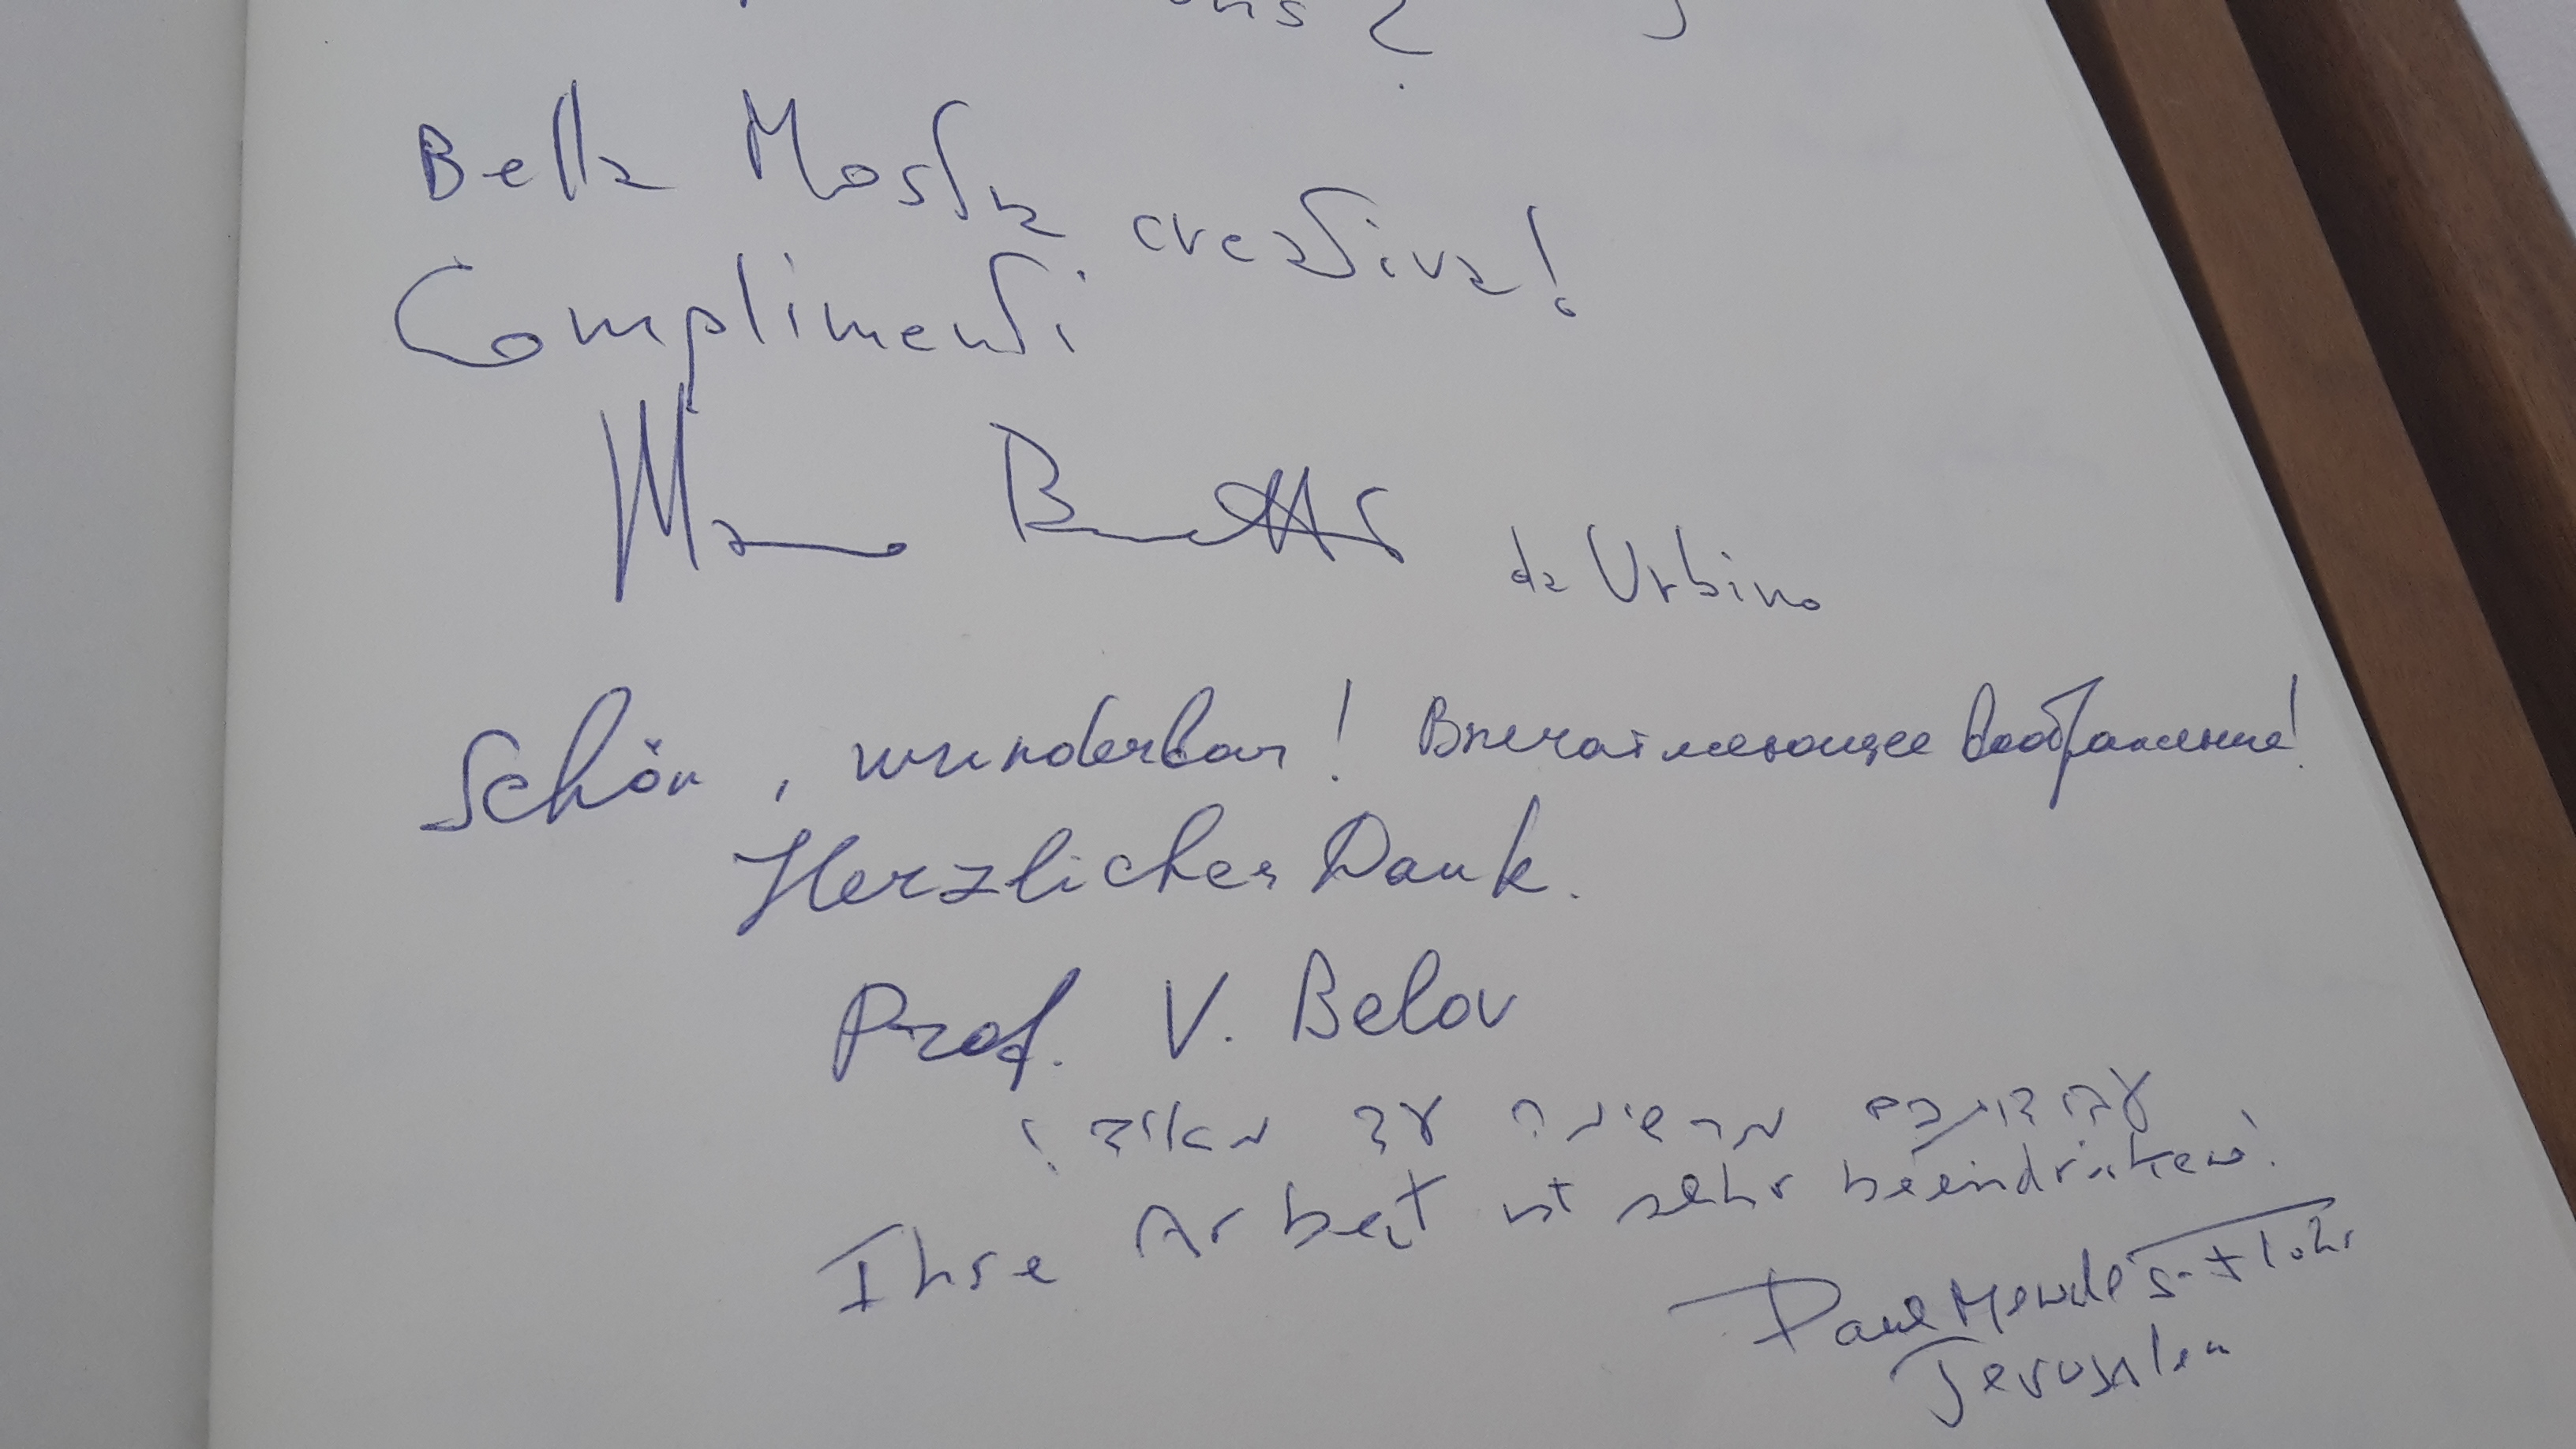 Bella Mostra creativa!
Complimenti
da Urbino
Schön, wunderbar! Впечатляющее воображение!
Herzlichen Dank.
Prof. V. Belov
מאוד!
Ihre Arbeit ist sehr beeindrukend!
Paul Mendes-Flohr
Jerusalem